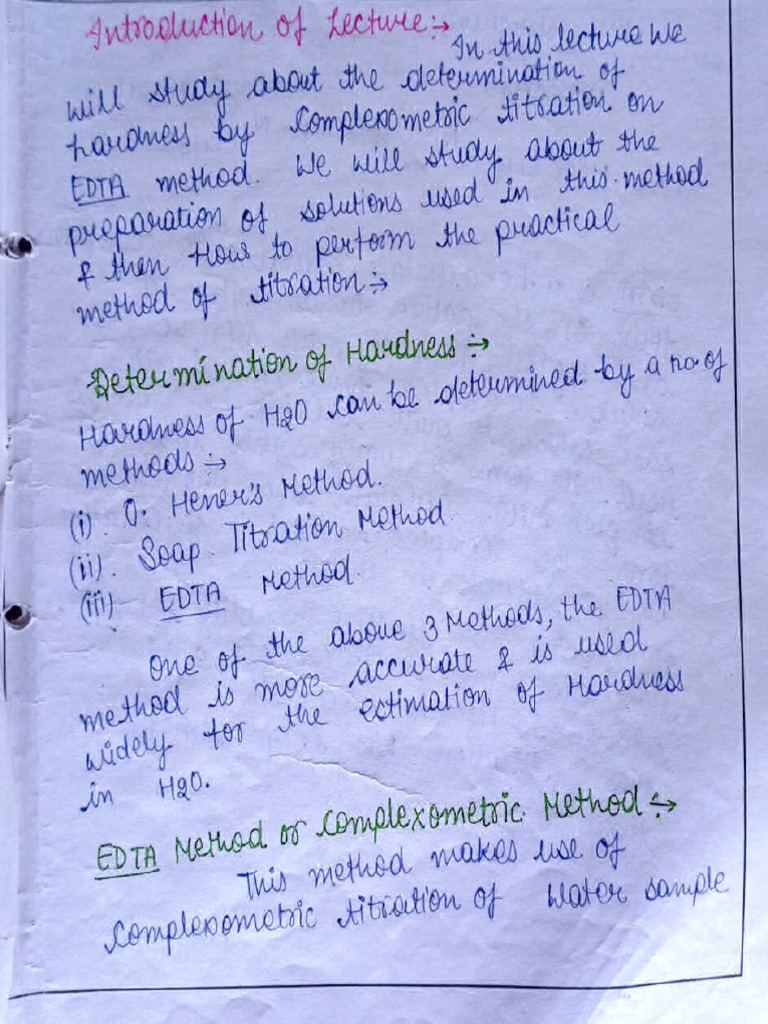 Introduction of Lecture :→ In this lecture we
will study about the determination of
hardness by complexometric titration on
EDTA method. We will study about the
preparation of solutions used in this method
& then How to perform the practical
method of titration :→
Determination of Hardness :→
Hardness of H2O can be determined by a no. of
methods :→
(i). O. Hener's Method.
(ii). Soap Titration Method
(iii) EDTA Method.
One of the above 3 Methods, the EDTA
method is more accurate & is used
widely for the estimation of Hardness
in H2O.
EDTA Method or Complexometric Method :→
This method makes use of
complexometric titration of Water sample